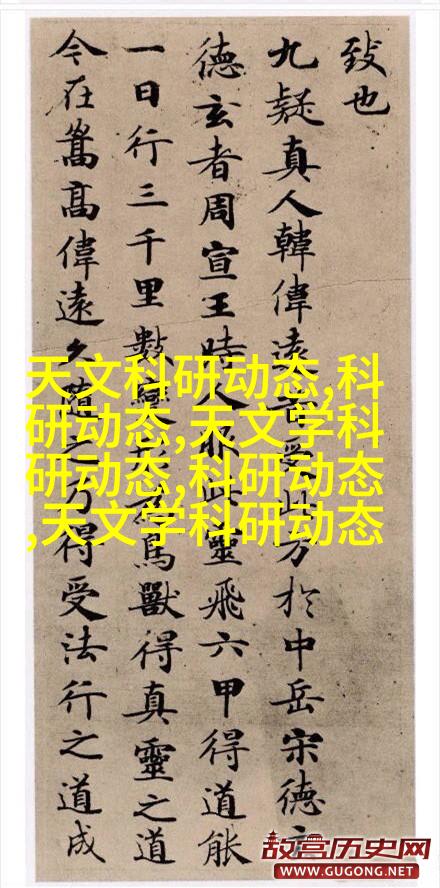 致也
九疑真人韓偉遠昔受此方於中岳宋德玄
德玄者周宣王時人服此靈飛六甲得道能
一日行三千里數變形為鳥獸得真靈之道
今在嵩高偉遠久隨之乃得受法行之道成
天文科研动态,科
研动态,天文学科
研动态,科研动态
,天文学科研动态
故宫历史网
WWW.GUGONG.NET